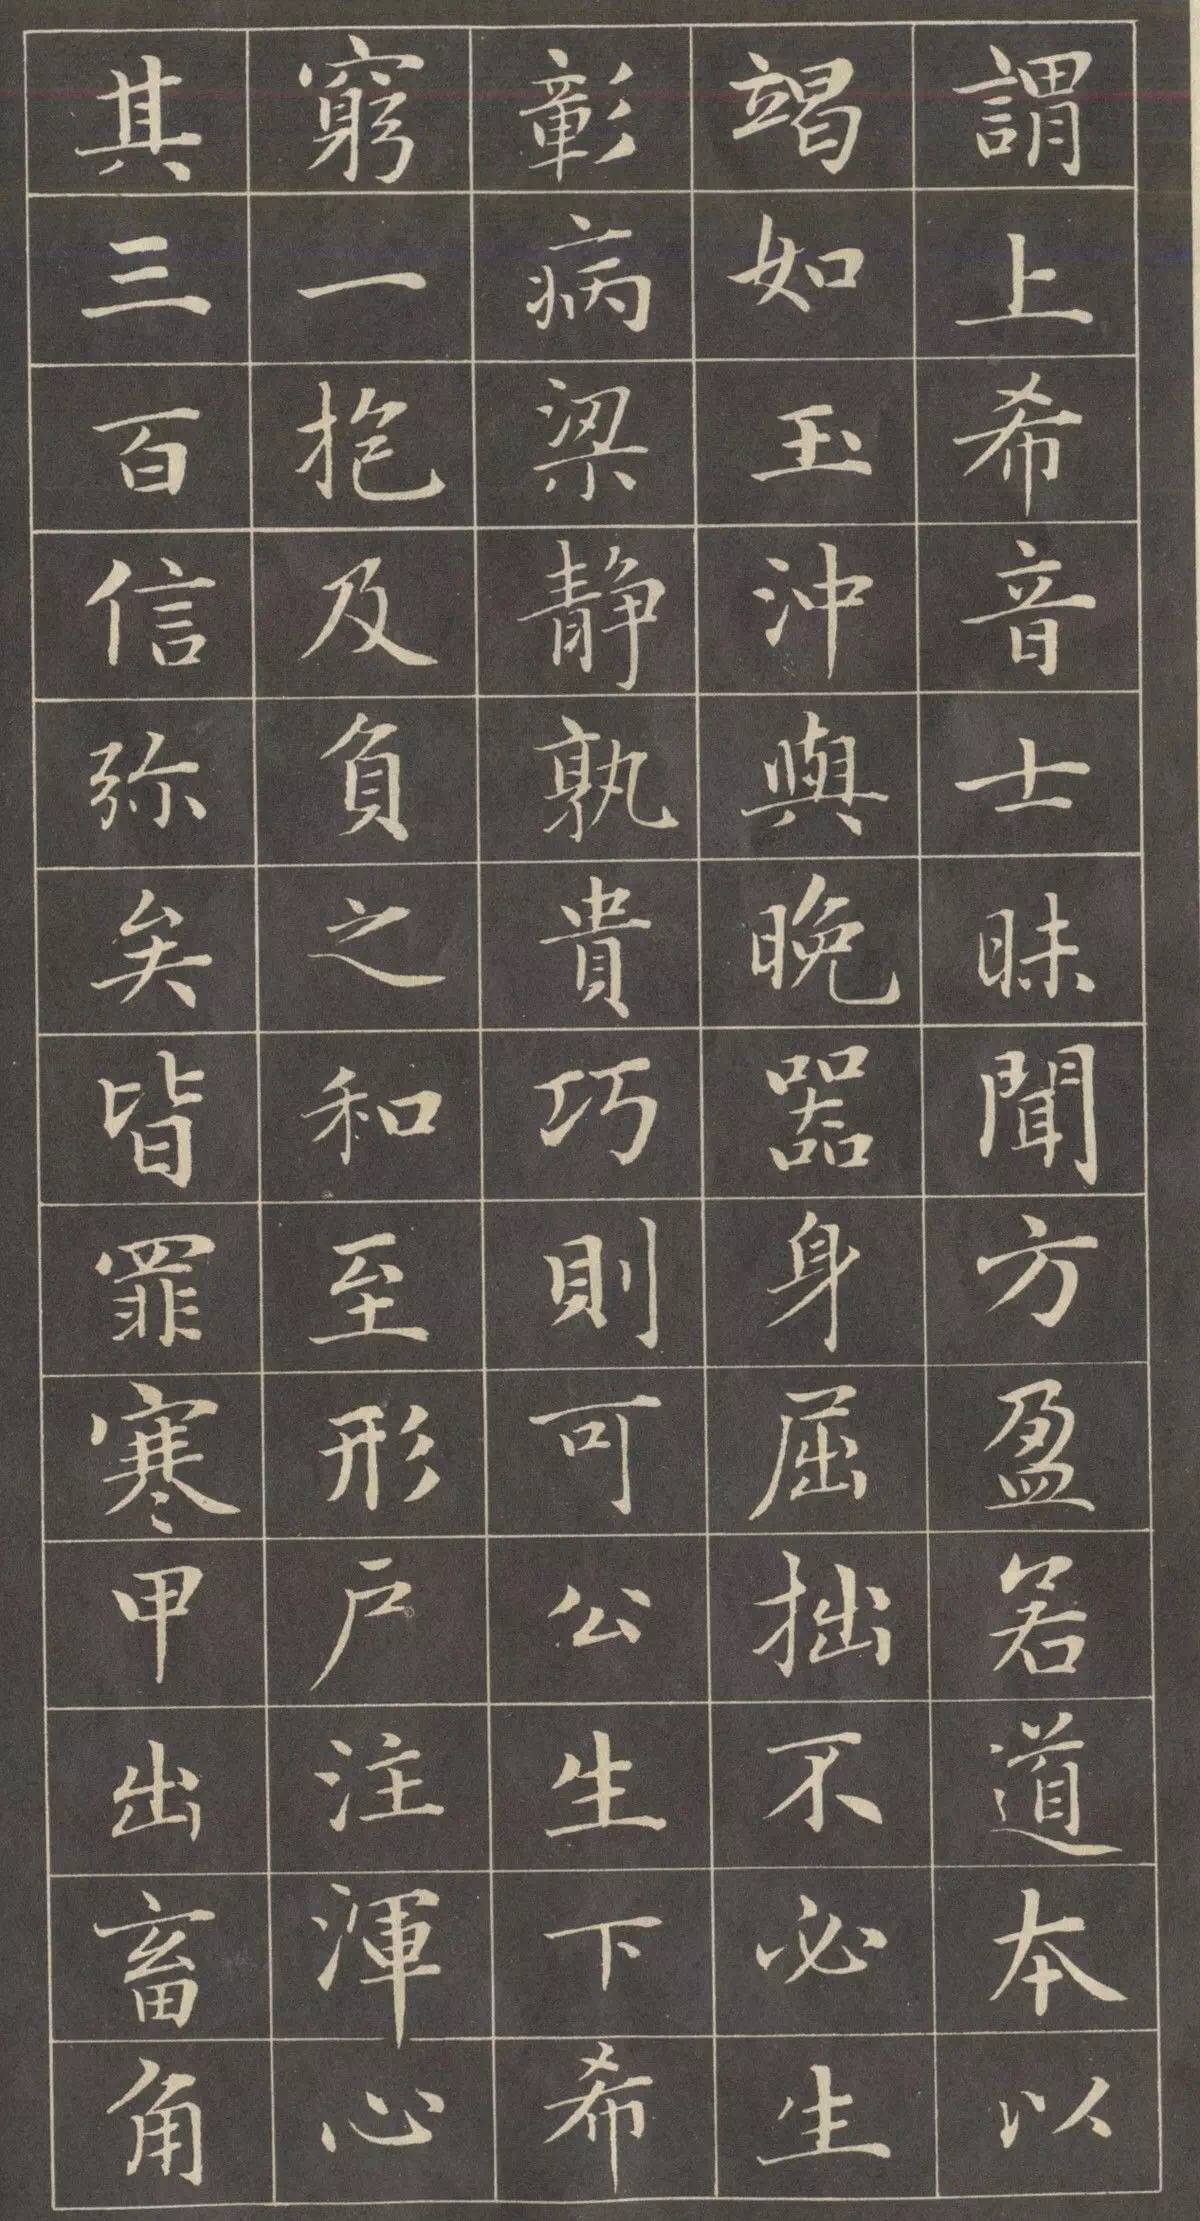 謂上希音士昧聞方盈若道本以
竭如玉沖與晚器身屈拙不必生
彰病梁静孰貴巧則可公生下希
窮一抱及負之和至形戶注渾心
其三百信弥矣皆罪寒甲出畜角